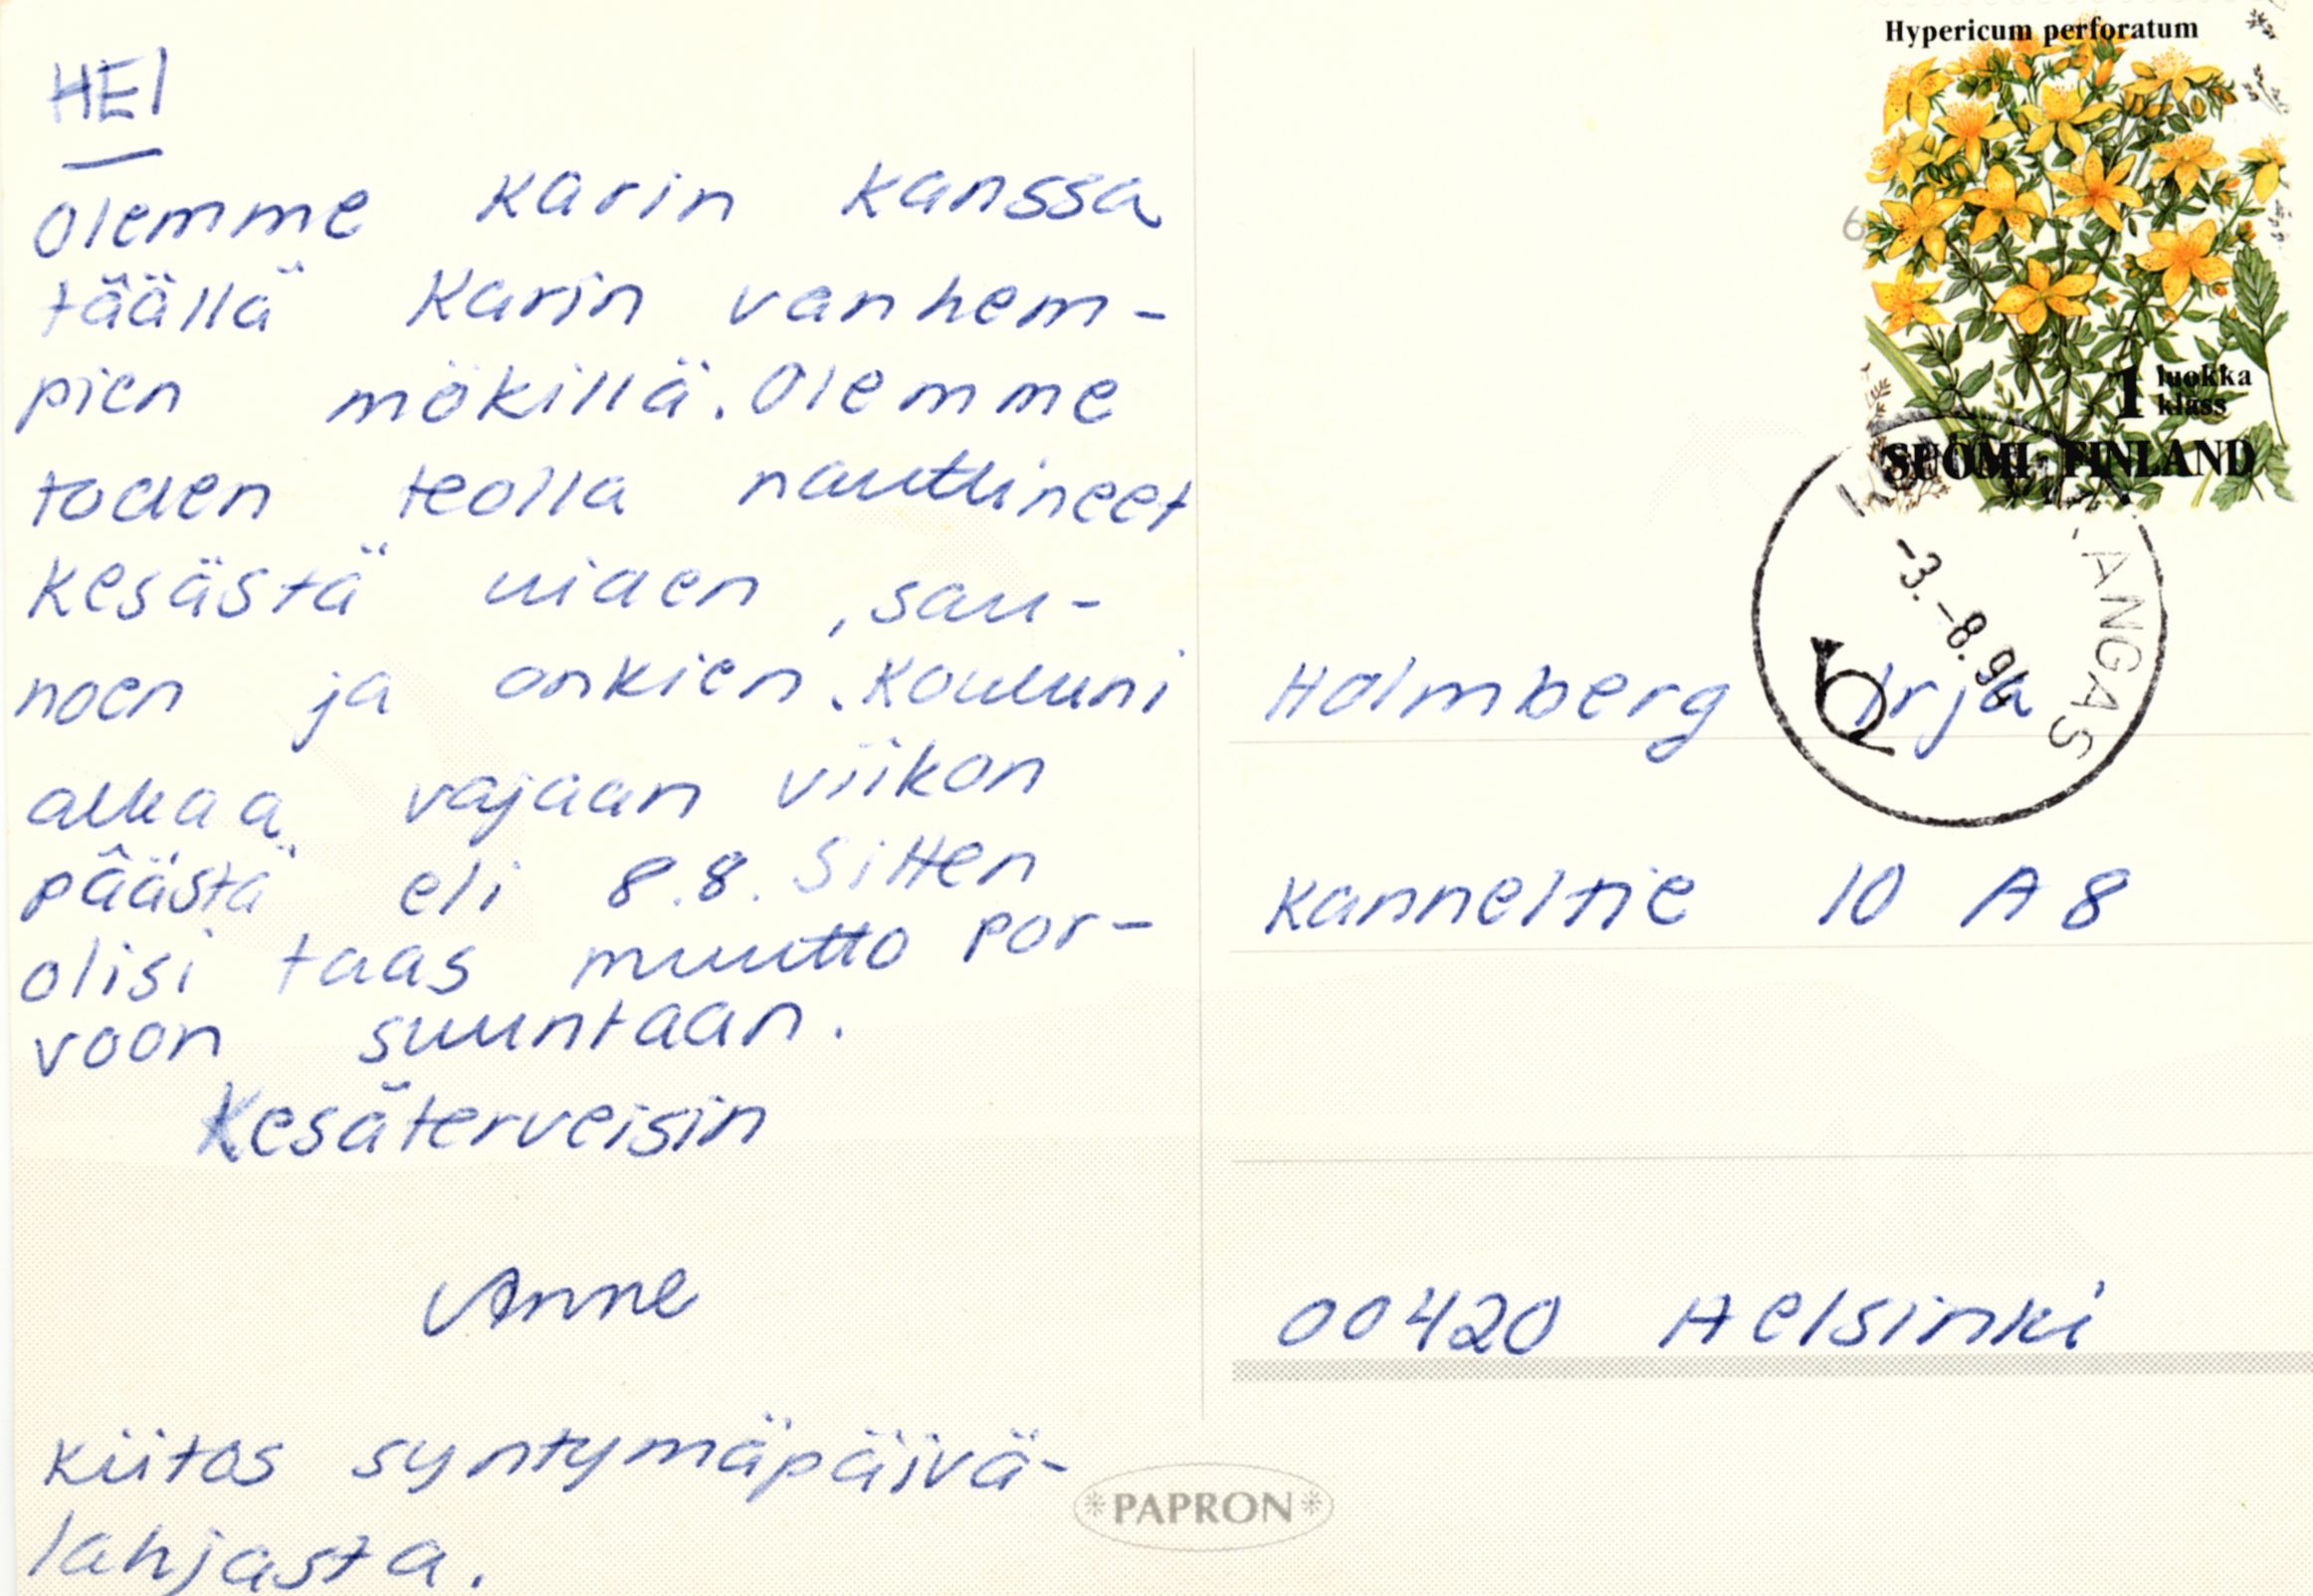 HEI
Olemme Karin kanssa
täällä Karin vanhem-
pien mökillä. Olemme
toden teolla nauttineet
kesästä uiden, sau-
noen ja onkien. Kouluni
alkaa vajaan viikon
päästä eli 8.8. Sitten
olisi taas muutto Por-
voon suuntaan.
Kesäterveisin
Anne
Kiitos syntymäpäivä-
lahjasta.
Hypericum perforatum
1 luokka
klass
SUOMI FINLAND
6
-3.-8.94
Holmberg Irja
Kanneltie 10 A 8
00420 Helsinki
*PAPRON*